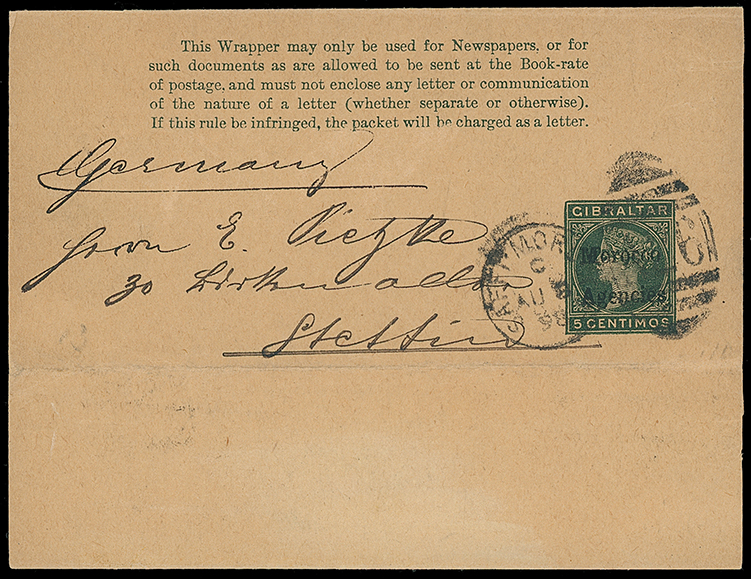 This Wrapper may only be used for Newspapers, or for
such documents as are allowed to be sent at the Book-rate
of postage, and must not enclose any letter or communication
of the nature of a letter (whether separate or otherwise).
If this rule be infringed, the packet will be charged as a letter.
Germany
Herrn E.
30
Stettin
GIBRALTAR
Morocco
Agencies
5 CENTIMOS
SAFFI-MOR
C
AU 8
98